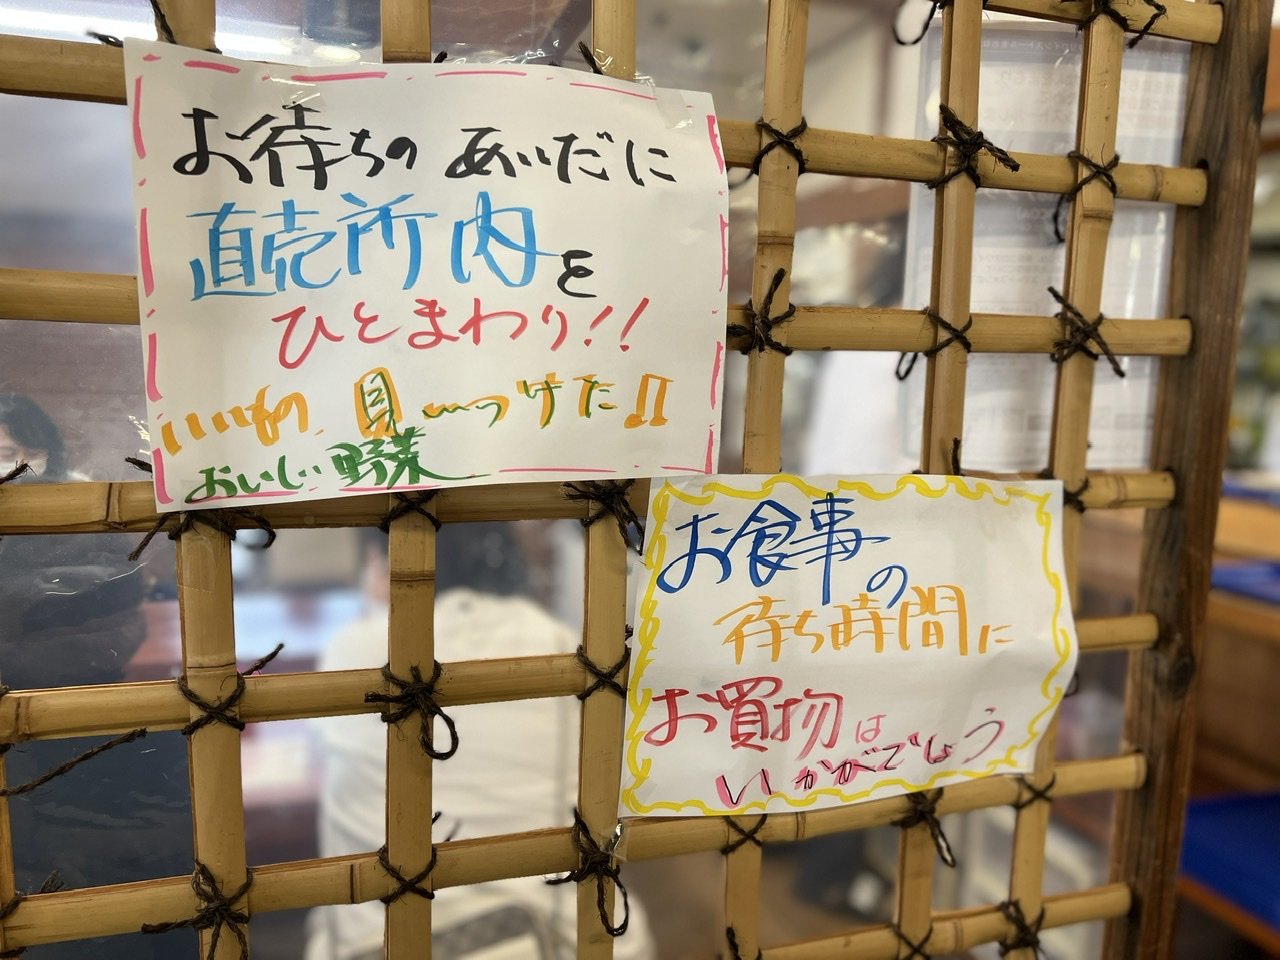 お待ちの あいだに
直売所内を
ひとまわり!!
いいもの 見〜つけた♫
おいしい野菜
お食事の
待ち時間に
お買物は
いかがでしょう